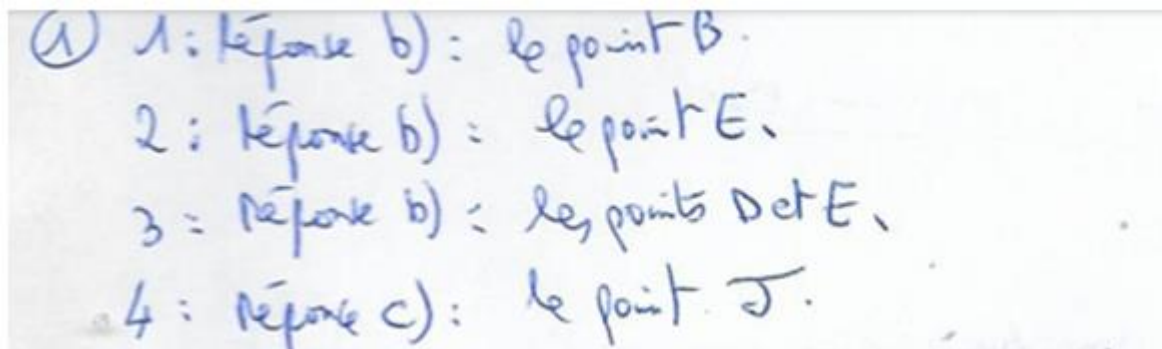 ① 1 : Réponse b) : le point B.
2 : Réponse b) : le point E.
3 : Réponse b) : les points D et E.
4 : Réponse c) : le point J.